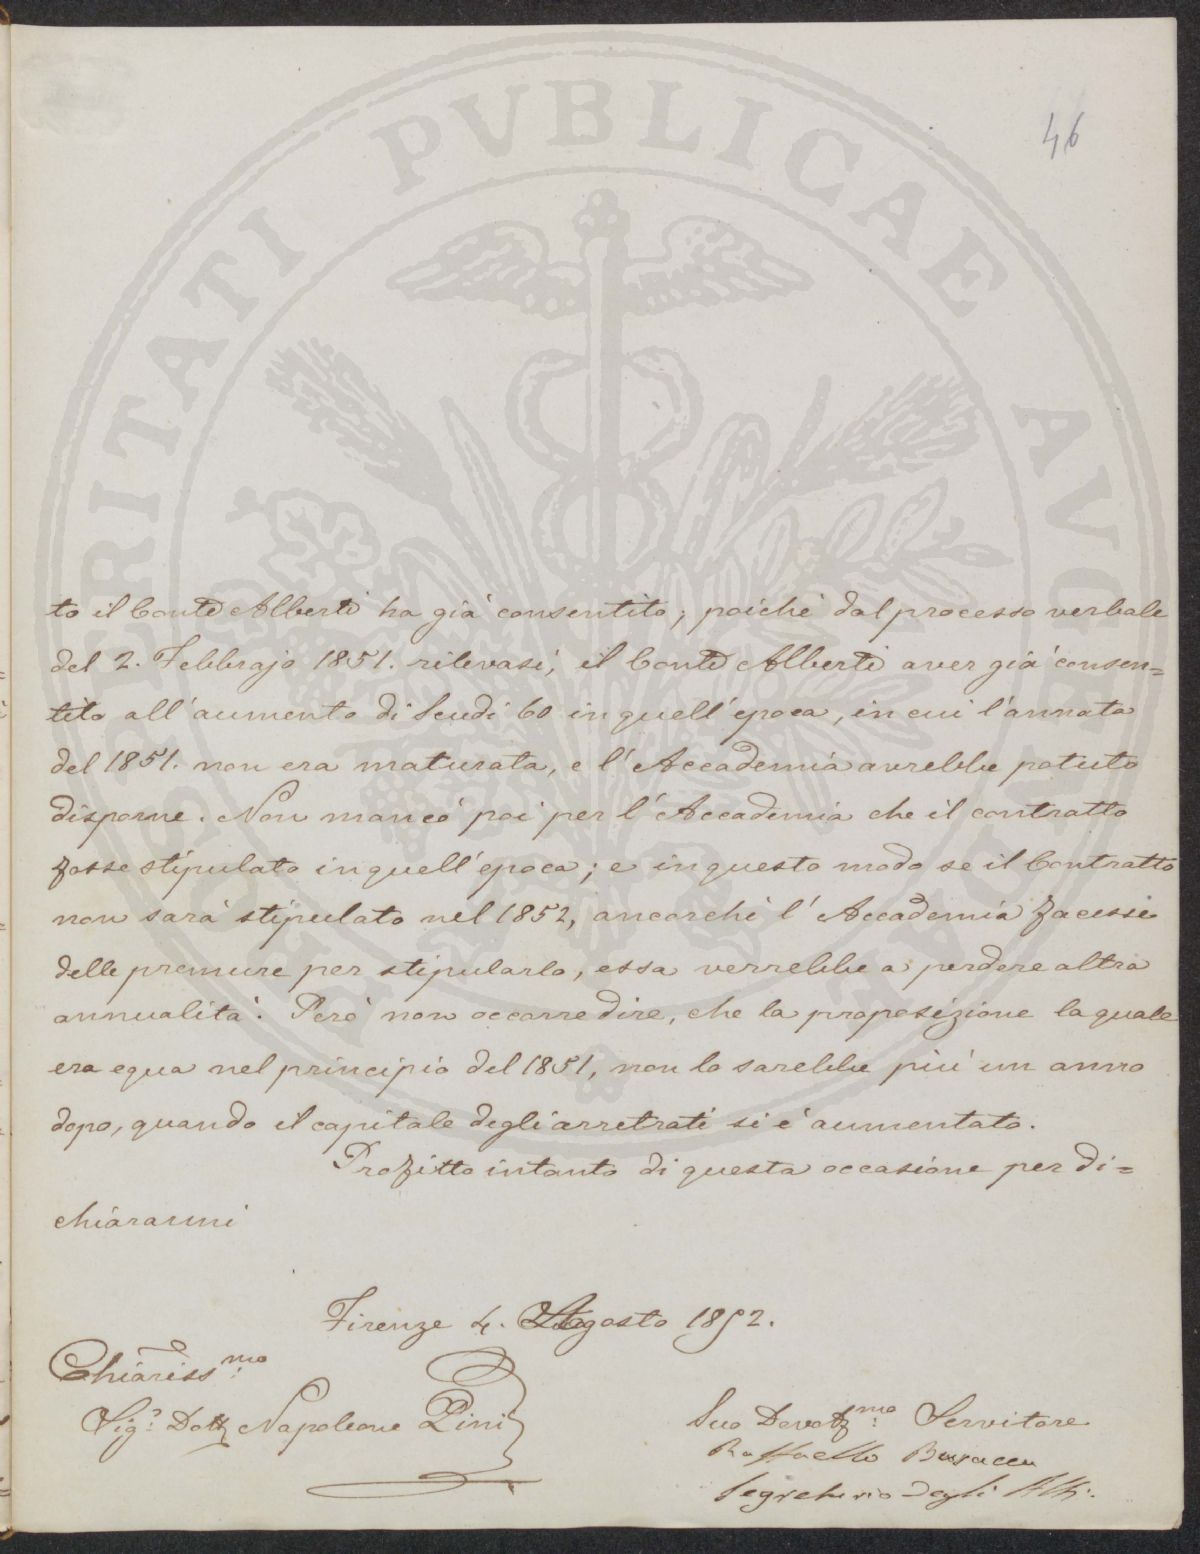 46
PROSPERITATI PVBLICAE AVGENDAE
to il Conte Alberti ha già consentito; poichè dal processo verbale
del 2. Febbrajo 1851. rilevasi, il Conte Alberti aver già consen=
tito all'aumento di Scudi 60 in quell'epoca, in cui l'annata
del 1851. non era maturata, e l'Accademia avrebbe potuto
disporne. Non mancò poi per l'Accademia che il contratto
fosse stipulato in quell'epoca; e in questo modo se il Contratto
non sarà stipulato nel 1852, ancorchè l'Accademia facesse
delle premure per stipularlo, essa verrebbe a perdere altra
annualità. Però non occorre dire, che la proposizione la quale
era equa nel principio del 1851, non lo sarebbe più un anno
dopo, quando il capitale degli arretrati si è aumentato.
Profitto intanto di questa occasione per di=
chiararmi
Firenze 4. Agosto 1852.
Chiariss.mo
Sig.r Dott Napoleone Pini
Suo Devot.mo Servitore
Raffaello Busacca
Segretario degli Atti.